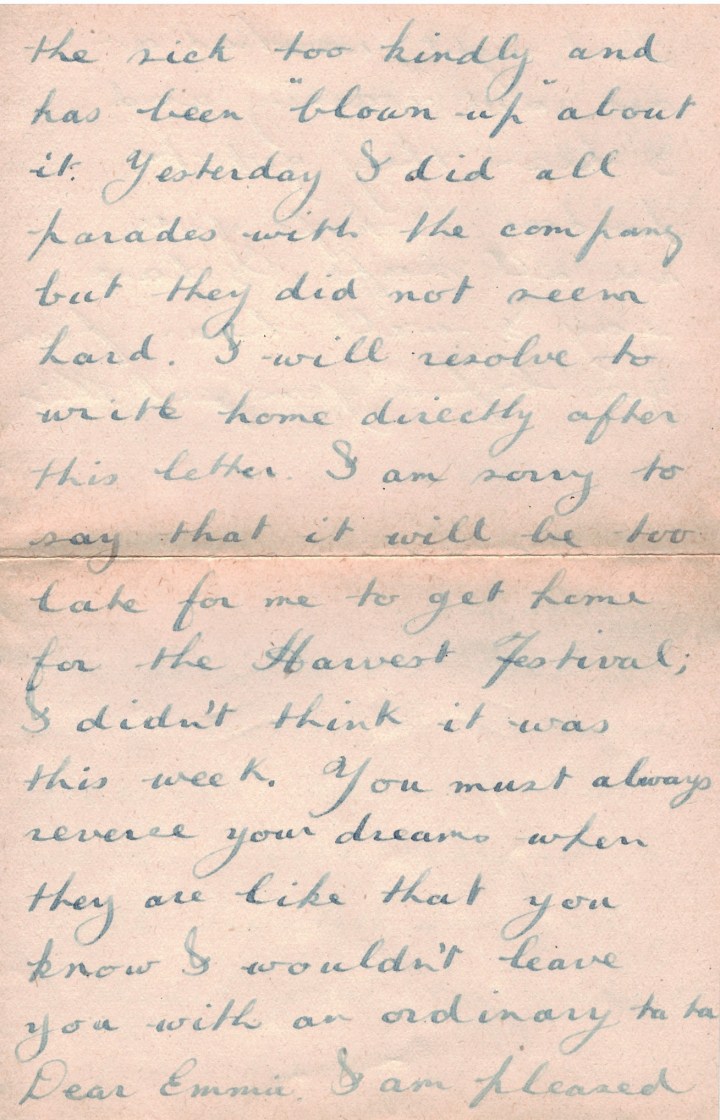 the sick too kindly and
has been "blown up" about
it. Yesterday I did all
parades with the company
but they did not seem
hard. I will resolve to
write home directly after
this letter. I am sorry to
say that it will be too
late for me to get home
for the Harvest Festival;
I didn't think it was
this week. You must always
reverse your dreams when
they are like that you
know I wouldn't leave
you with an ordinary ta ta
Dear Emmie. I am pleased